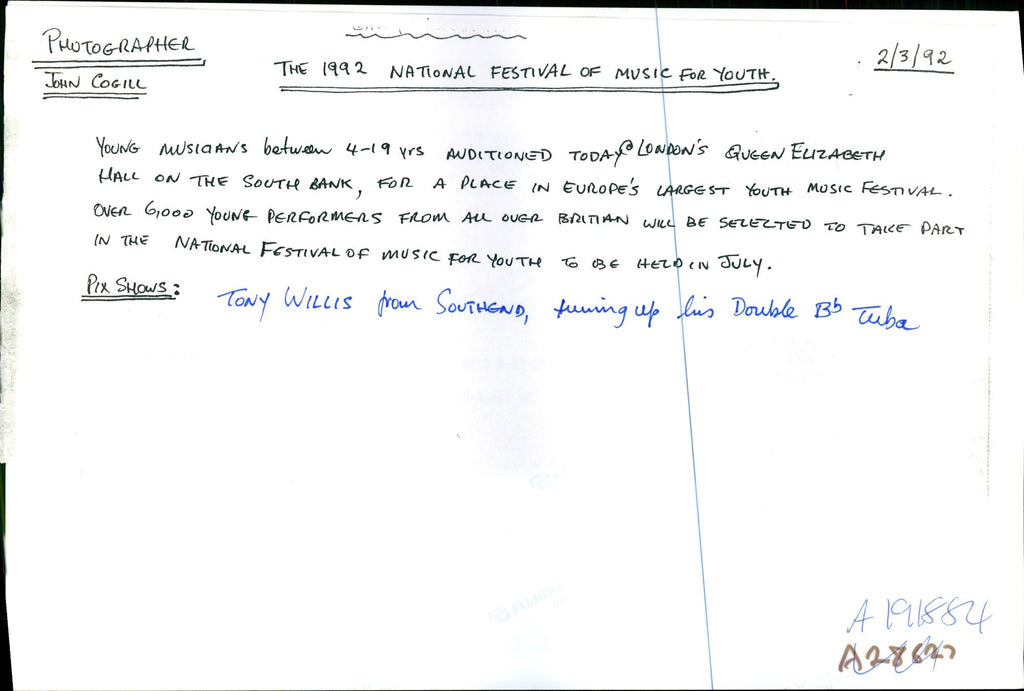 PHOTOGRAPHER
JOHN COGILL
THE 1992 NATIONAL FESTIVAL OF MUSIC FOR YOUTH.
2/3/92
YOUNG MUSICIANS between 4-19 yrs AUDITIONED TODAY @ LONDON'S QUEEN ELIZABETH
HALL ON THE SOUTH BANK, FOR A PLACE IN EUROPE'S LARGEST YOUTH MUSIC FESTIVAL.
OVER 6,000 YOUNG PERFORMERS FROM ALL OVER BRITIAN WILL BE SELECTED TO TAKE PART
IN THE NATIONAL FESTIVAL OF MUSIC FOR YOUTH TO BE HELD IN JULY.
PIX SHOWS:
TONY WILLIS from SOUTHEND, tuning up his Double Bb Tuba
A191884